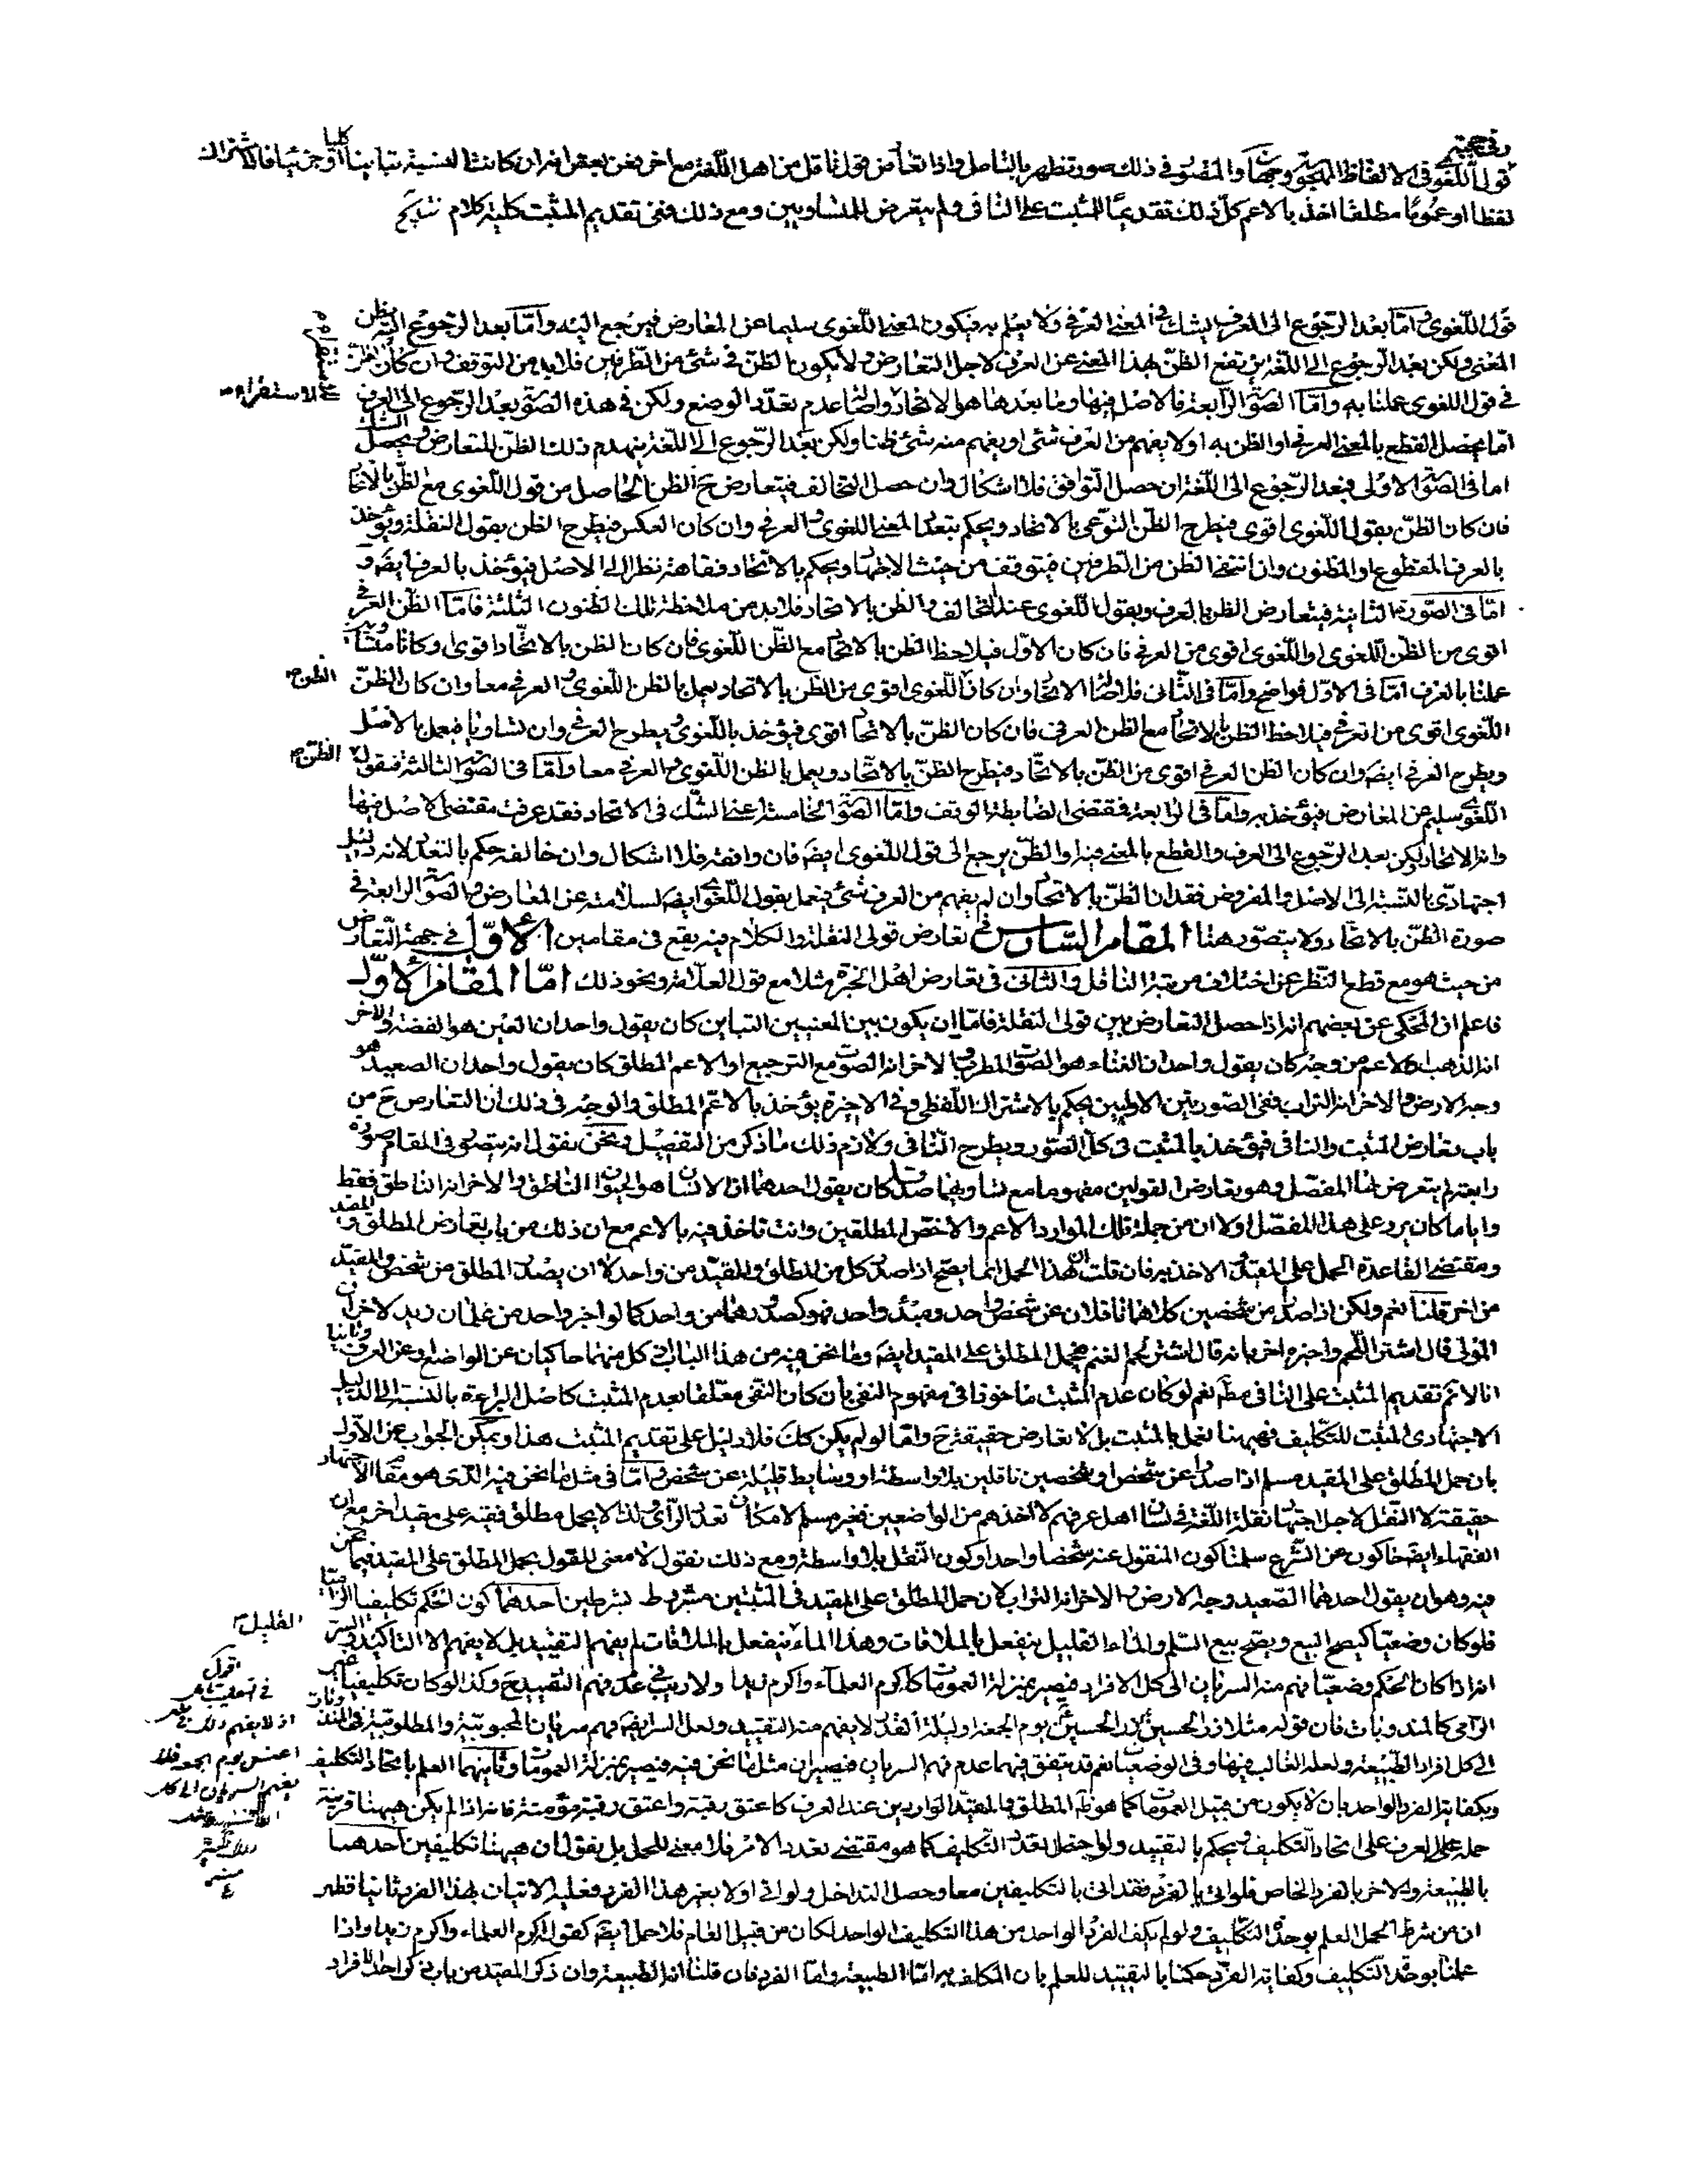 وفي حجية
قول اللغوي في الالفاظ المهجورة وجهان والمقصود في ذلك صور تظهر بالتامل واذا تعارض قول ناقل من اهل اللغة مع اخر فعن بعض انه ان كانت النسبة تباينا كليا او جزئيا فالاشتراك
لفظا او عموما مطلقا اخذ بالاعم كل ذلك تقديما للمثبت على النافي ولم يتعرض للمتساويين ومع ذلك ففي تقديم المثبت كلية كلام
قول اللغوي اما بعد الرجوع الى العرف ليشك في المعنى العرفي ولا يعلم به فيكون المعنى اللغوي سليما عن المعارض فيرجع اليه واما بعد الرجوع اليه يظن
المعنى ولكن بعد الرجوع الى اللغة يرتفع الظن بهذا المعنى عن العرف لاجل التعارض ولا يكون الظن في شئ من الطرفين فلابد من التوقف وان كان الظن
في قول اللغوي عملنا به واما الصورة الرابعة فالاصل فيها وما بعدها هو الاتحاد واصالة عدم تعدد الوضع ولكن في هذه الصور بعد الرجوع الى العرف
اما يحصل القطع بالمعنى العرفي او الظن به او لا يفهم من العرف شئ او يفهم منه شئ ظنا ولكن بعد الرجوع الى اللغة ينهدم ذلك الظن للتعارض ويحصل الشك
اما في الصورة الاولى فبعد الرجوع الى اللغة ان حصل التوافق فلا اشكال وان حصل التخالف فيتعارض ح الظن الحاصل من قول اللغوي مع الظن بالاتحاد
فان كان الظن بقول اللغوي اقوى فيطرح الظن النوعي بالاتحاد ويحكم بتعدد المعنى اللغوي والعرفي وان كان العكس فيطرح الظن بقول النقلة ويؤخذ
بالعرف المقطوع او المظنون وان انتفى الظن من الطرفين فيتوقف من حيث الاجتهاد ويحكم بالاتحاد فقاهة نظرا الى الاصل فيؤخذ بالعرف ايضه و
اما في الصورة الثانية فيتعارض الظن بالعرف وبقول اللغوي عند التخالف والظن بالاتحاد فلابد من ملاحظة تلك الظنون الثلثة فاما الظن العرفي
اقوى من الظن اللغوي او اللغوي اقوى من العرفي فان كان الاول فيلاحظ الظن بالاتحاد مع الظن اللغوي فان كان الظن بالاتحاد اقوى او كانا متساويين
عملنا بالعرف اما في الاول فواضح واما في الثاني فلاصالة الاتحاد وان كان اللغوي اقوى من الظن بالاتحاد يعمل بالظن اللغوي والعرفي معا وان كان الظن
اللغوي اقوى من العرفي فيلاحظ الظن بالاتحاد مع الظن العرفي فان كان الظن بالاتحاد اقوى فيؤخذ باللغوي ويطرح العرفي وان تساويا فيعمل بالاصل
ويطرح العرفي ايضه وان كان الظن العرفي اقوى من الظن بالاتحاد فيطرح الظن بالاتحاد ويعمل بالظن اللغوي والعرفي معا واما في الصورة الثالثة فنقول الظن
اللغوي سليم عن المعارض فيؤخذ به واما في الرابعة فمقتضى الضابطة الوقف واما الصورة الخامسة اعني الشك في الاتحاد فقد عرفت مقتضى الاصل فيها
وانه الاتحاد لكن بعد الرجوع الى العرف والقطع بالمعنى فيه او الظن يرجع الى قول اللغوي ايضه فان وافقه فلا اشكال وان خالفه حكم بالتعدد لانه دليل
اجتهادي بالنسبة الى الاصل والمفروض فقدان الظن بالاتحاد وان لم يفهم من العرف شئ فيعمل بقول اللغوي ايضه لسلامته عن المعارض والصورة الرابعة في
صورة الظن بالاتحاد ولا يتصور هنا المقام السادس في تعارض قولي النقلة والكلام فيه يقع في مقامين الاول في جهة التعارض
من حيث هو مع قطع النظر عن اختلاف مرتبة الناقل والثاني في تعارض اهل الخبرة مثلا مع قول العلامة ونحو ذلك اما المقام الاول
فاعلم ان المحكي عن بعضهم انه اذا حصل التعارض بين قولي النقلة فاما ان يكون بين المعنيين التباين كان يقول واحد ان العين هو الفضة والاخر
انه الذهب او الاعم من وجه كان يقول واحد ان الغناء هو الصوت المطرب والاخر انه الصوت مع الترجيع او الاعم المطلق كان يقول واحد ان الصعيد هو
وجه الارض والاخر انه التراب ففي الصورتين الاوليين يحكم بالاشتراك اللفظي وفي الاخيرة يؤخذ بالاعم المطلق والوجه في ذلك ان التعارض ح من
باب تعارض المثبت والنافي فيؤخذ بالمثبت في كل الصور ويطرح النافي ولازم ذلك ما ذكر من التفصيل ونحن نقول انه يتصور في المقام صورة
رابعة لم يتعرض لها المفصل وهو تعارض القولين مفهوما مع تساويهما صدقا كان يقول احدهما ان الانسان هو الحيوان الناطق والاخر انه الناطق فقط
وايا ما كان يرد على هذا المفصل اولا ان من جملة تلك الموارد الاعم والاخص المطلقين وانت تاخذ فيه بالاعم مع ان ذلك من باب تعارض المطلق والمقيد
ومقتضى القاعدة الحمل على المقيد والاخذ به فان قلت ان هذا الحمل انما يصح اذا صدر كل من المطلق والمقيد من واحد لا ان يصدر المطلق من شخص والمقيد
من اخر قلنا نعم ولكن اذا صدرا من شخصين كلاهما ناقلان عن شخص واحد ومبدء واحد فهو كصدورهما من واحد كما لو اخبر واحد من غلمان زيد لاخر ان
المولى قال اشتر اللحم واخبره اخر بانه قال اشتر لحم الغنم فيحمل المطلق على المقيد ايضه وما نحن فيه من هذا الباب اذ كل منهما حاكيان عن الواضع او عن العرف وثانيا
انا لا نم تقديم المثبت على النافي مطلقا نعم لو كان عدم المثبت ماخوذا في مفهوم النفي بان كان النفي معلقا بعدم المثبت كاصل البراءة بالنسبة الى الدليل
الاجتهادي المثبت للتكليف فهيهنا نعمل بالمثبت بل لا تعارض حقيقة ح واما لو لم يكن كك فلا دليل على تقديم المثبت هذا ويمكن الجواب عن الاول
بان حمل المطلق على المقيد مسلم اذا صدرا عن شخص او شخصين ناقلين بلا واسطة او وسايط قليلة عن شخص واما في مثل ما نحن فيه الذي هو مقام الاجتهاد
حقيقة لا النقل لاجل اجتهاد نقلة اللغة في لسان اهل عرفهم لا اخذهم من الواضعين فغير مسلم لامكان تعدد الراي ولذا لا يحمل مطلق فقيه على مقيد اخر مع ان
الفقهاء ايضه حاكون عن الشرع سلمنا كون المنقول عنه شخصا واحدا وكون النقل بلا واسطة ومع ذلك نقول لا معنى للقول بحمل المطلق على المقيد فيما نحن
فيه وهو ان يقول احدهما الصعيد وجه الارض والاخر انه التراب لان حمل المطلق على المقيد في المثبتين مشروط بشرطين احدهما كون الحكم تكليفيا الزاميا
فلو كان وضعيا كيصح البيع ويصح بيع السلم والماء القليل ينفعل بالملاقات وهذا الماء ينفعل بالملاقات لم يفهم التقييد بل لا يفهم الا التاكيد والسر
انه اذا كان الحكم وضعيا فهم منه السريان الى كل الافراد فيصير بمنزلة العمومات كاكرم العلماء واكرم زيدا ولا ريب في عدم فهم التقييد ح وكذا لو كان تكليفيا غير
الزامي كالمندوبات فان قوله مثلا زر الحسين زر الحسين يوم الجمعة او ليلة القدر لا يفهم منه التقييد ولعل السر ايضه فهم سريان المحبوبية والمطلوبية في المندوبات
الى كل افراد الطبيعة ولعله الغالب فيها وفي الوضعيات نعم قد يتفق فيهما عدم فهم السريان فيصير ان مثل ما نحن فيه فيصير بمنزلة العمومات وثانيهما العلم باتحاد التكليف
وبكفاية الفرد الواحد بان لا يكون من قبيل العمومات كما هو ظاهر المطلق والمقيد الواردين عند العرف كاعتق رقبة واعتق رقبة مؤمنة فانه اذا لم يكن هيهنا قرينة
حمله على العرف على اتحاد التكليف ويحكم بالتقييد ولو احتمل تعدد التكليف كما هو مقتضى تعدد الامر فلا معنى للحمل بل يقول ان هيهنا تكليفين احدهما
بالطبيعة والاخر بالفرد الخاص فلو اتى بالفرد فقد اتى بالتكليفين معا وحصل التداخل ولو اتى اولا بغير هذا الفرد فعليه الاتيان بهذا الفرد ثانيا فظهر
ان من شرط الحمل العلم بوحدة التكليف ولو لم يكف الفرد الواحد من هذا التكليف الواحد لكان من قبيل العام فلا حمل ايضه كقوله اكرم العلماء واكرم زيدا واذا
علمنا بوحدة التكليف وكفاية الفرد حكمنا بالتقييد للعلم بان المكلف به اما الطبيعة واما الفرد فان قلنا انه الطبيعة وان ذكر المقيد من باب ذكر احد الافراد
الظن
القليل
اقول
اذ لا يفهم ذلك في
يوم الجمعة فلا
يفهم السريان الى كل
منه